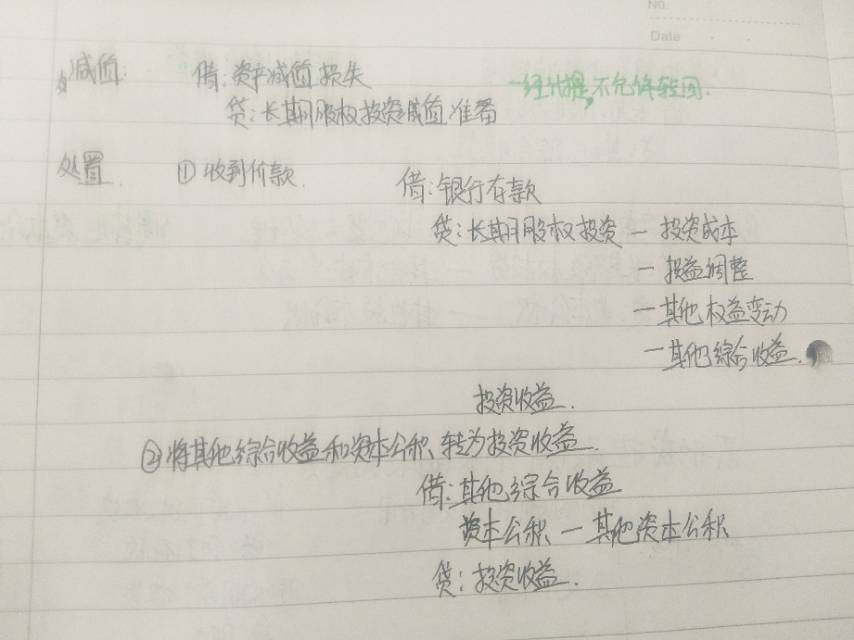 No.
Date
减值: 借:资产减值损失 一经计提,不允许转回.
贷:长期股权投资减值准备
处置. ①收到价款. 借:银行存款
贷:长期股权投资 — 投资成本
— 损益调整
— 其他权益变动
— 其他综合收益.
投资收益.
②将其他综合收益和资本公积、转为投资收益.
借:其他综合收益
资本公积 — 其他资本公积
贷:投资收益.